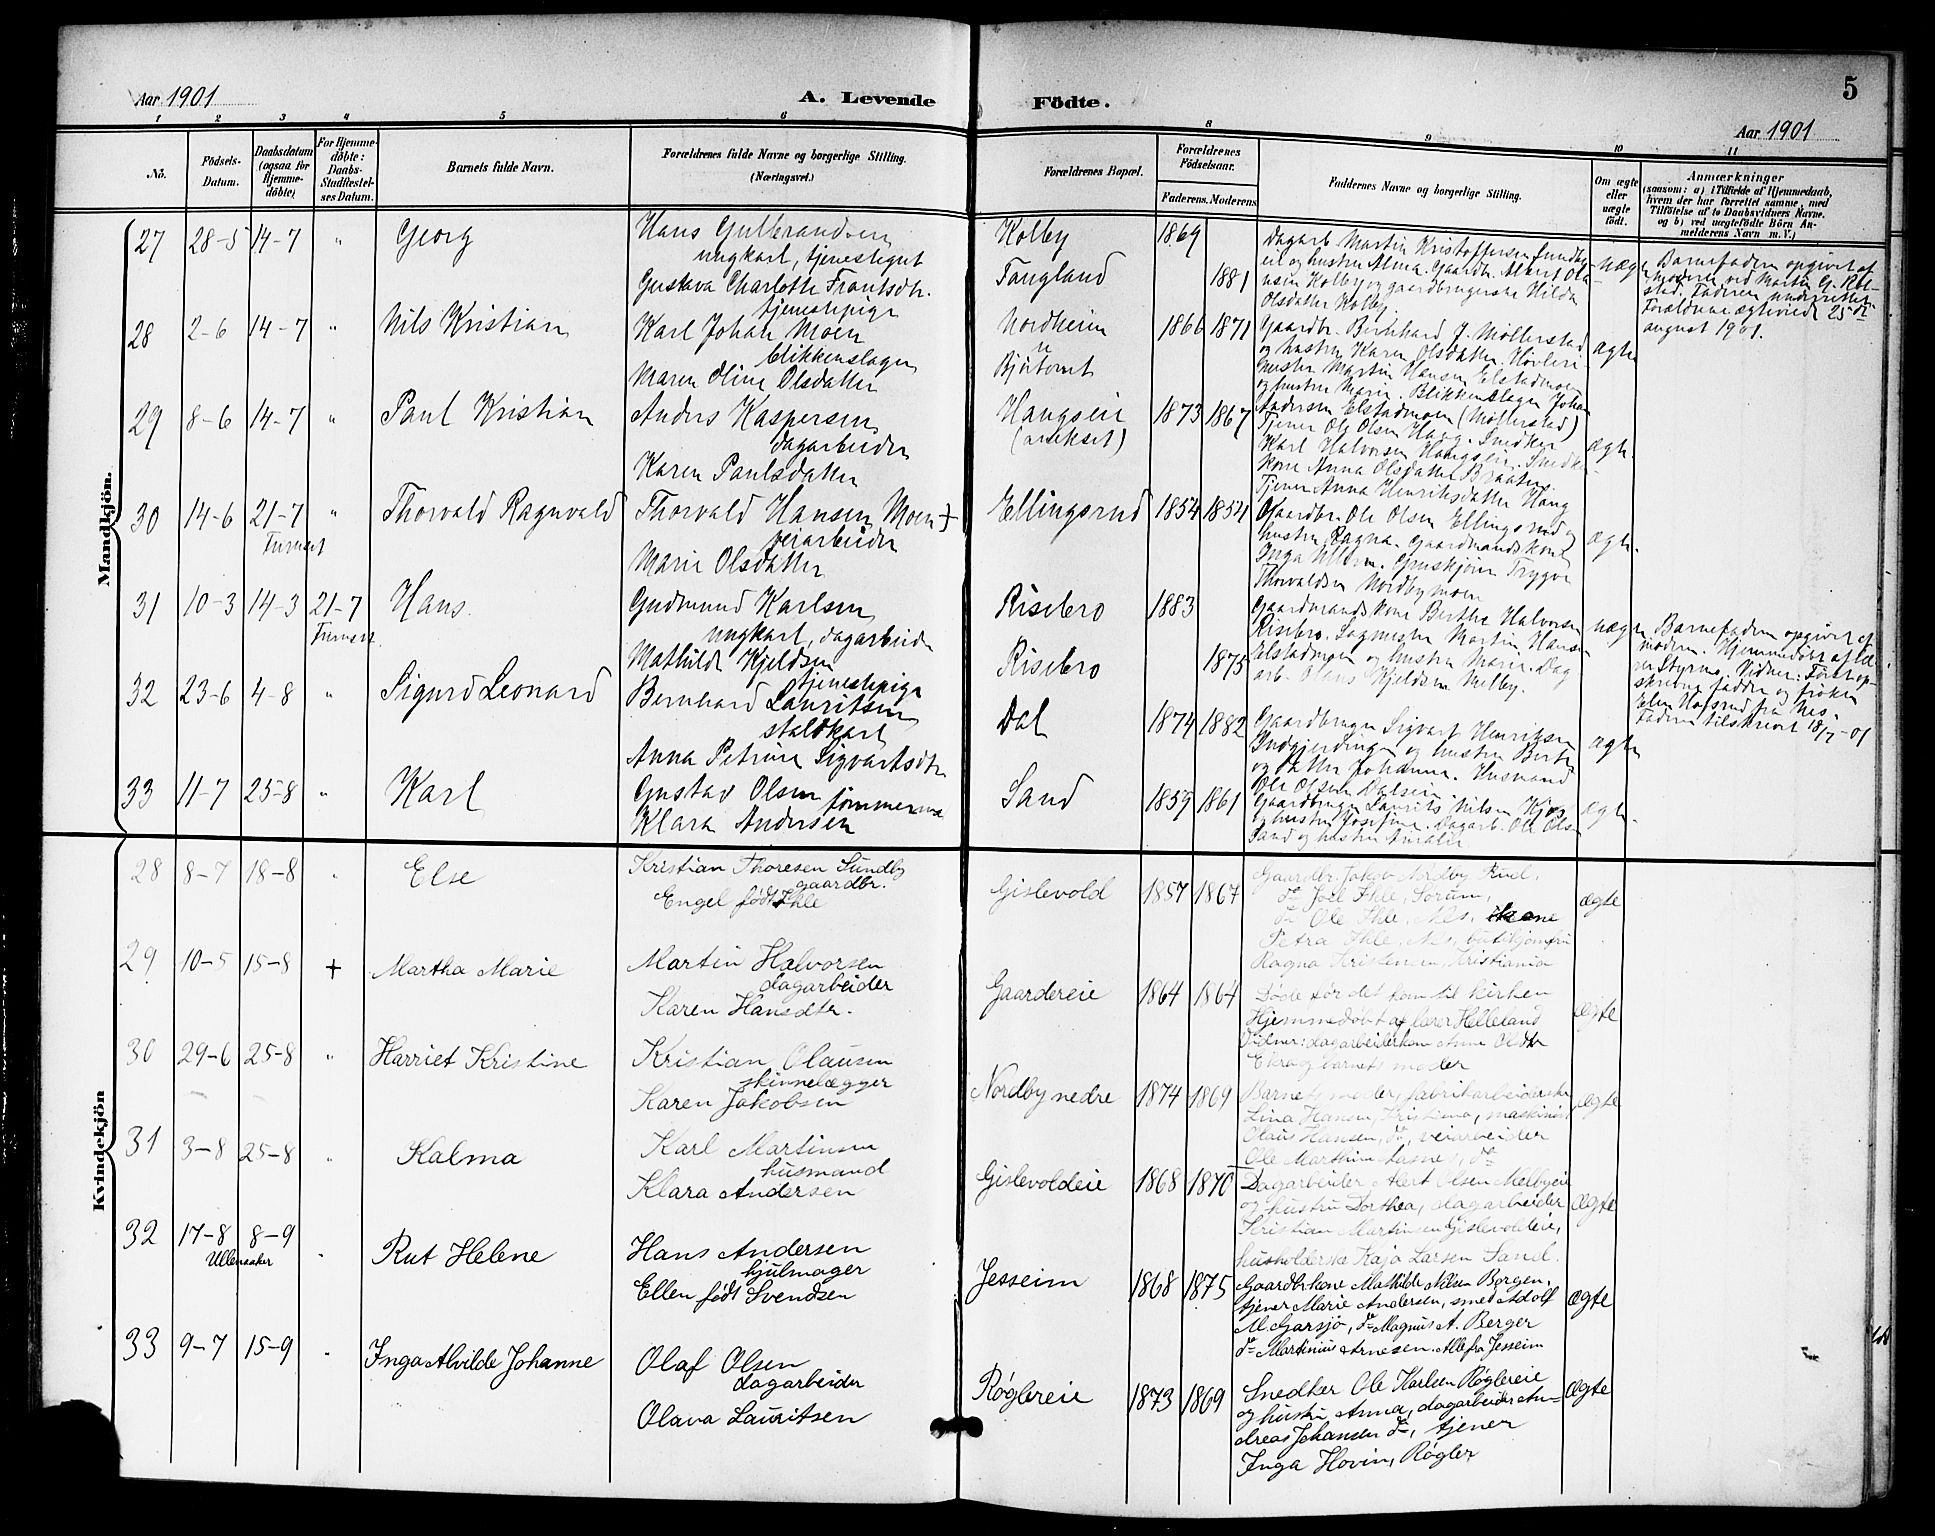 Aar 1901
A. Levende Födte.
5
Aar 1901
1 2 3 4 5 6 8 9 10 11
No.
Födsels-Datum.
Daabsdatum (ogsaa for Hjemmedöbte)
For Hjemmedöbte: Daabs-Stadfestelses Datum.
Barnets fulde Navn.
Forældrenes fulde Navne og borgerlige Stilling. (Næringsvei.)
Forældrenes Bopæl.
Forældrenes Födselsaar.
Faderens. Moderens
Faddernes Navne og borgerlige Stilling.
Om ægte eller uægte födt.
Anmærkninger
(saasom: a) i Tilfælde af Hjemmedaab, hvem der har forrettet samme, med Tilföielse af to Daabsvidners Navne, og b) ved uægtefödte Börn Anmelderens Navn m. V.)
Mandkjön.
27 28-5 14-7 " Georg
Hans Gulbrandsen
ungkarl, tjenestegut
Gustava Charlotte Frantsdtr.
tjenestepige
Kolby 1869
Tangland 1881
Dagarb. Martin Kristoffersen Sundby-
eie og hustru Alma. Gaardbr. Albert Ole
Kolby og gaardbrugerske Hilda
Olsdatter Kolby.
uægte
Barnefaderen opgivet af
moderen ved Martin G. Kol-
stad. Faderen underrettet.
Forældrene ægteviede 25de
august 1901.
28 2-6 14-7 " Nils Kristian
Karl Johan Moen
blikkenslager
Maren Oline Olsdatter
Nordheim
Bjertomt
1866 1871
Gaardbr. Bernhard J. Möllerstad
og hustru Karen Olsdatter. Hövleri-
Martin Hansen Elstadmoen
og hustru Marie. Blikkenslager Johan
Andersen Elstadmoen (Möllerstad)
ægte
29 8-6 14-7 " Paul Kristian
Anders Kaspersen
dagarbeider
Karen Paulsdatter
Haugseie
(annekset)
1873 1867
Tjener Ole Olsen Haug. Snedker
Karl Halvorsen Haugseie. Snedker-
kone Anna Olsdatter Braaten.
Tjener Anna Henriksdatter Haug
ægte.
30 14-6 21-7 " Thorvald Ragnvald
Furuset
Thorvald Hansen Moen +
veiarbeider
Marie Olsdatter
Ellingsrud 1854 1854
Gaardbr. Ole Olsen Ellingsrud og
hustru Ragna. Gaardmandskone
Inga Ullern. Trygve
Thorvaldsen Nordbymoen
ægte.
31 10-3 14-3 21-7 Hans
Furuset
Gudmund Karlsen
ungkarl, dagarbeider
Mathilde Kjeldsen
tjenestepige
Risebro 1883
Risebro 1875
Gaardmandskone Berthe Halvorsen
Risebro. Sagmester Martin Hansen
Elstadmoen og hustru Marie. Dag
arb. Olaus Kjeldsen Melby.
uægte
Barnefaderen opgivet af
moderen. Hjemmedöbt af læ-
rer Styrmo. Vidner: Först op-
skrevne fadder og fröken
Elen Hofsrud fra Nes.
Faderen tilskrevet 18/7-01
32 23-6 4-8 " Sigurd Leonard
Bernhard Lauritsen
staldkarl
Anna Petrine Sigvartsdtr
Dal 1874 1882
Gaardbruger Sigvart Henriksen
og hustru Berte
og datter Johanne. Husmand
Ole Olsen Dalseie.
ægte
33 11-7 25-8 " Karl
Gustav Olsen tömmerm.
Klara Andersen
Sand 1859 1861
Gaardbruger Laurits Nilsen Kjos
og hustru Josefine. Dagarb. Ole Olsen
Sand og hustru Amalie
ægte.
Kvindekjön
28 8-7 18-8 " Else
Kristian Thoresen Sundby
gaardbr.
Engel født Ihle
Gislevold 1857 1867
Gaardbr. Jakob Nordby Rud,
do Joel Ihle, Sørum,
do Ole Ihle, Nes,
Petra Ihle, Nes, butikjomfru
Ragna Kristensen, Kristiania
ægte
29 10-5 15-8 + Martha Marie
Martin Halvorsen
dagarbeider
Karen Hansdtr.
Gaardereie 1864 1864
Døde før det kom til kirken
Hjemmedøbt af lærer Helleland
Vidner: dagarbeiderkone Anne Olsdtr
Ekra og barnets moder
ægte
30 29-6 25-8 " Harriet Kristine
Kristian Olausen
skinnelægger
Karen Jakobsen
Nordby nedre 1874 1869
Barnets moder, fabrikarbeiderske
Lina Hansen, Kristiania, maskinist
Olaus Hansen, do, veiarbeider
Ole Marthin Aasnes, do
ægte
31 3-8 25-8 " Kalma
Karl Martinsen
husmand
Klara Andersen
Gislevoldeie 1868 1870
Dagarbeider Alert Olsen Melbyeie
og hustru Dorthea, dagarbeider
Kristian Martinsen Gislevoldeie,
husholderske Kaja Larsen Sand.
ægte
32 17-8 8-9 " Rut Helene
Ullensaker
Hans Andersen
hjulmager
Ellen født Svendsen
Jesseim 1868 1875
Gaardbr.kone Mathilde Nilsen Borgen,
tjener Marie Andersen, smed Adolf
M. Garsjø, do Magnus A. Berger
do Martinius Arnesen. Alle fra Jesseim
ægte
33 9-7 15-9 " Inga Alvilde Johanne
Olaf Olsen
dagarbeider
Olava Lauritsen
Røglereie 1873 1869
Snedker Ole Karlsen Røglereie
og hustru Anna, dagarbeider An-
dreas Johansen do, tjener
Inga Hovin, Røgler
ægte